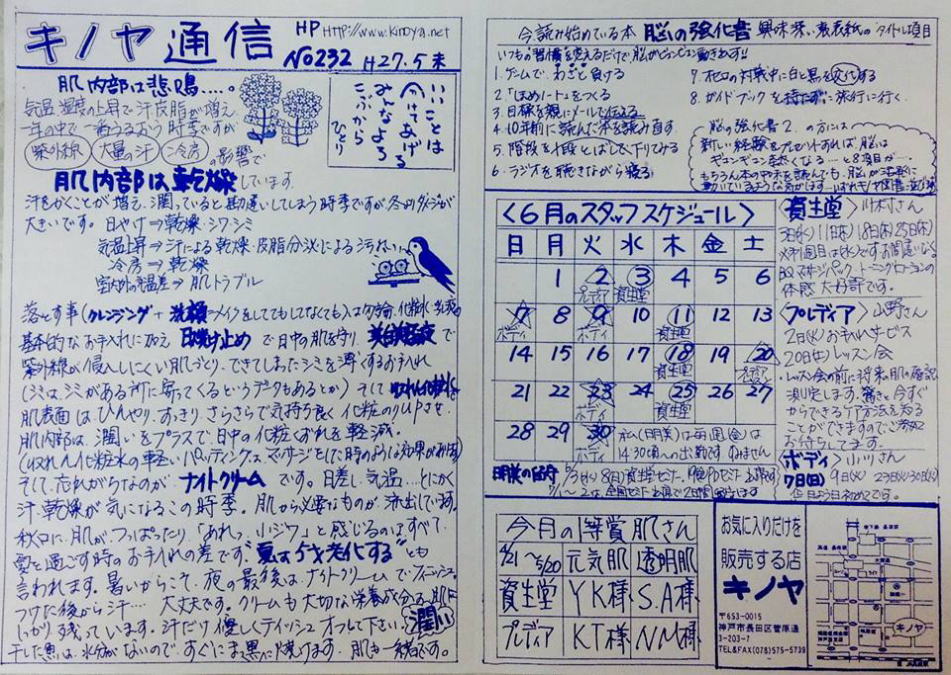 キノヤ通信
HP http://www.kinoya.net
No232 H27.5末
肌内部は悲鳴....。
気温 湿度の上昇で汗皮脂が増え
一年の中で一番うるおう時季ですが
紫外線 大量の汗 冷房 の影響で
肌内部は乾燥しています.
いいことは
分けてあげる
みんなよろ
こぶから
ひとり
汗をかくことが増え.潤っていると勘違いしてしまう時季ですが.冬よりダメージが
大きいです。 日やけ⇒乾燥・シワ・シミ
気温上昇⇒汗による乾燥・皮脂分泌による汚れ
冷房⇒乾燥
室内外の気温差⇒肌トラブル
落とす事(クレンジング+洗顔
基本的なお手入れに加え 日焼け止め で日中の肌を守り 美白美容液 で
紫外線が侵入しにくい肌づくり.できてしまったシミを薄くするお手入れ
(シミは.シミがある所に寄ってくるというデータもあるとか) そして 収れん化粧水
肌表面は.ひんやり.すっきり.さらさらで気持ち良く 化粧のりupさせ.
肌内部は.潤いをプラスで.日中の化粧くずれを軽減.
(収れん化粧水の軽いパッティングは.マッサージをした時のような効果があります)
そして.忘れがちなのが.ナイトクリーム です。日差し.気温....とにかく
汗.乾燥が気になるこの時季. 肌から必要なものが流出しています.
秋口に.肌がつっぱったり.「あれっ.小ジワ」と感じるのはすべて.
夏を過ごす時のお手入れの差です "夏は5才老化する" とも
言われます.暑いからこそ.夜の最後は.ナイトクリームでフィニッシュ.
つけた後から汗... 大丈夫です。クリームの大切な栄養成分は.肌に
しっかり残っています.汗だけ優しくティッシュオフして下さい 潤い
干した魚は.水分がないので.すぐにま黒に焼けます.肌も一緒です。
今読み始めている本 脳の強化書 興味深い裏表紙のタイトル項目
いつもの習慣を変えるだけで脳がビュンビュン動きだす!!
1.ゲームで.わざと負ける
2.「ほめノート」をつくる
3.目標を親にメールで伝える
4.10年前に読んだ本を読み直す
5.階段を1段とばしで下りてみる
6.ラジオを聴きながら寝る
7.オセロの対戦中に白と黒を交代する
8.ガイドブックを持たずに旅行に行く.
脳の強化書2.の方には
新しい経験をプレゼントすれば.脳は
ギュンギュン若がえくなる...と8項目が...
〈6月のスタッフスケジュール〉
日 月 火 水 木 金 土
1 2 3 4 5 6
プレディア 資生堂
7 8 9 10 11 12 13
ボディ ボディ 資生堂
14 15 16 17 18 19 20
資生堂 プレディア
21 22 23 24 25 26 27
ボディ 資生堂
28 29 30
ボディ
私(明美)は毎週(金)は
14:30頃〜の出勤です.すみません
〈資生堂〉川村さん
3日(水)11日(木)18日(木)25日(木)
体感 大好評です.
〈プレディア〉山野さん
2日(火)お手入れサービス
20日(土)レッスン会
・レッスン会の前に将来肌の解説
からできるケア方法を知る
ことができますのでご参加
お待ちしてます.
〈ボディ〉小川さん
7日(日) 9日(火) 23日(火)30日(火)
今月の1等賞肌さん
4/21〜5/20 元気肌 透明肌
資生堂 YK様 S.A様
プレディア KT様 NM様
お気に入りだけを
販売する店
キノヤ
〒653-0015
神戸市長田区菅原通
3-203-7
TEL&FAX(078)575-5739
キノヤ